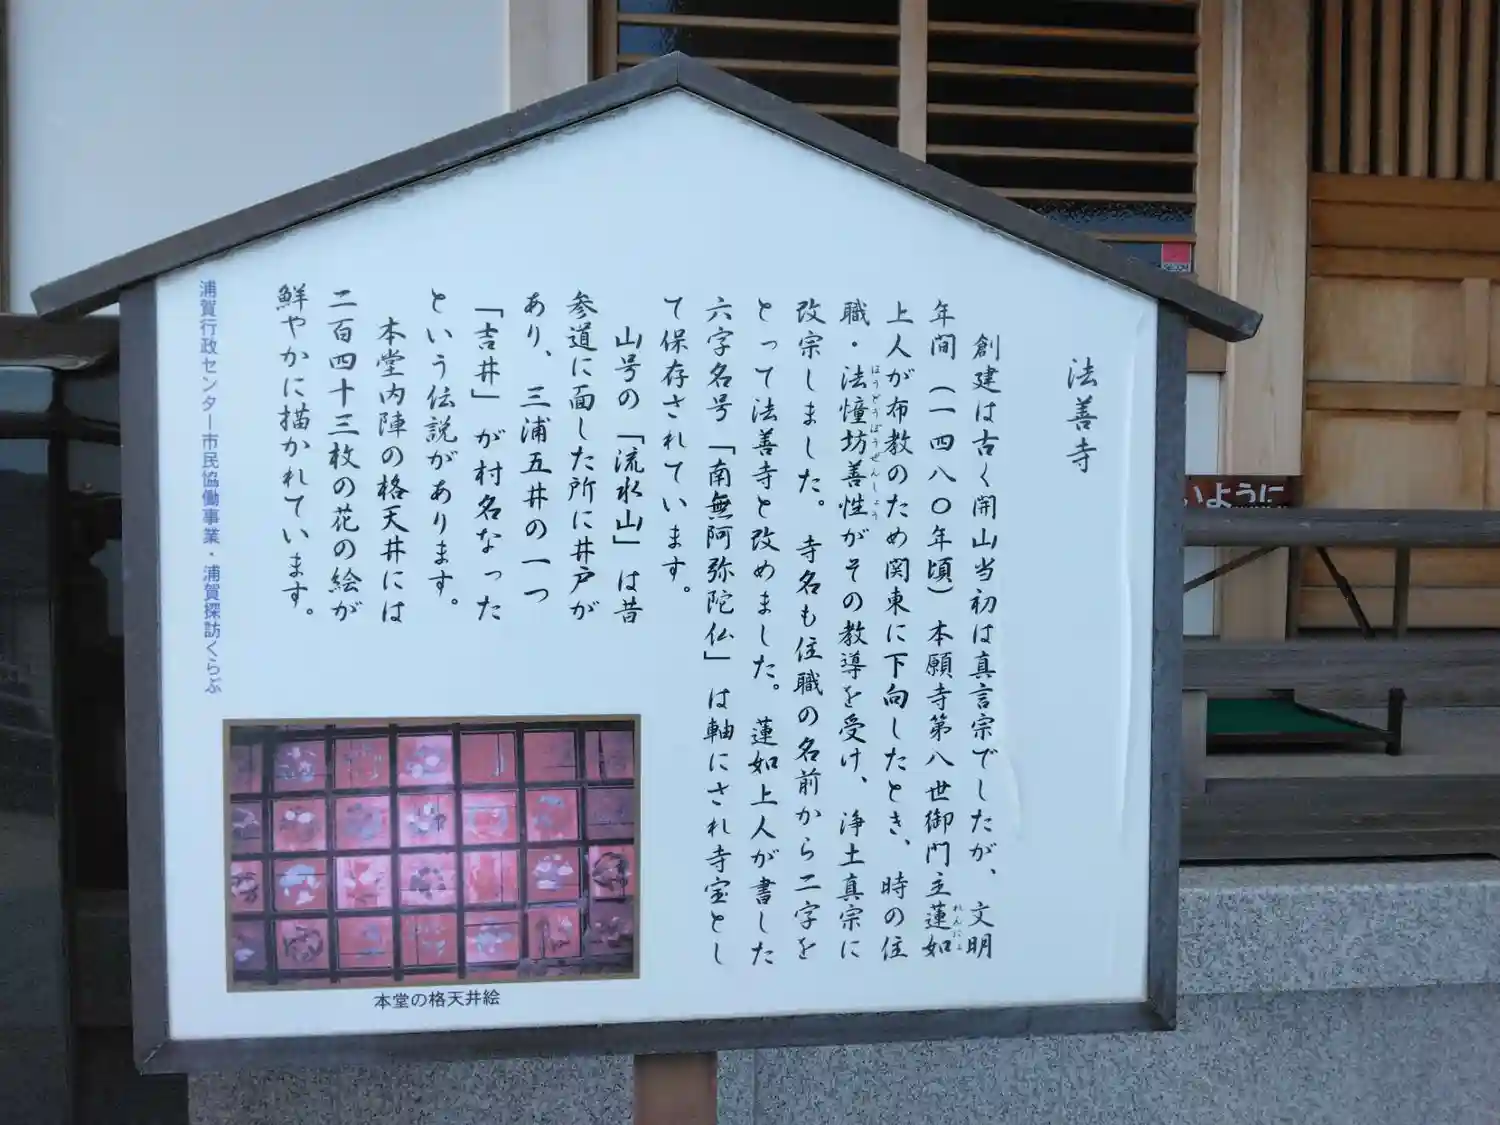 法善寺
創建は古く開山当初は真言宗でしたが、文明
年間（一四八〇年頃）本願寺第八世御門主蓮如
れんにょ
上人が布教のため関東に下向したとき、時の住
職・法憧坊善性がその教導を受け、浄土真宗に
ほうどうぼうぜんしょう
改宗しました。寺名も住職の名前から二字を
とって法善寺と改めました。蓮如上人が書した
六字名号「南無阿弥陀仏」は軸にされ寺宝とし
て保存されています。
山号の「流水山」は昔
参道に面した所に井戸が
あり、三浦五井の一つ
「吉井」が村名なった
という伝説があります。
本堂内陣の格天井には
二百四十三枚の花の絵が
鮮やかに描かれています。
浦賀行政センター市民協働事業・浦賀探訪くらぶ
本堂の格天井絵
いように